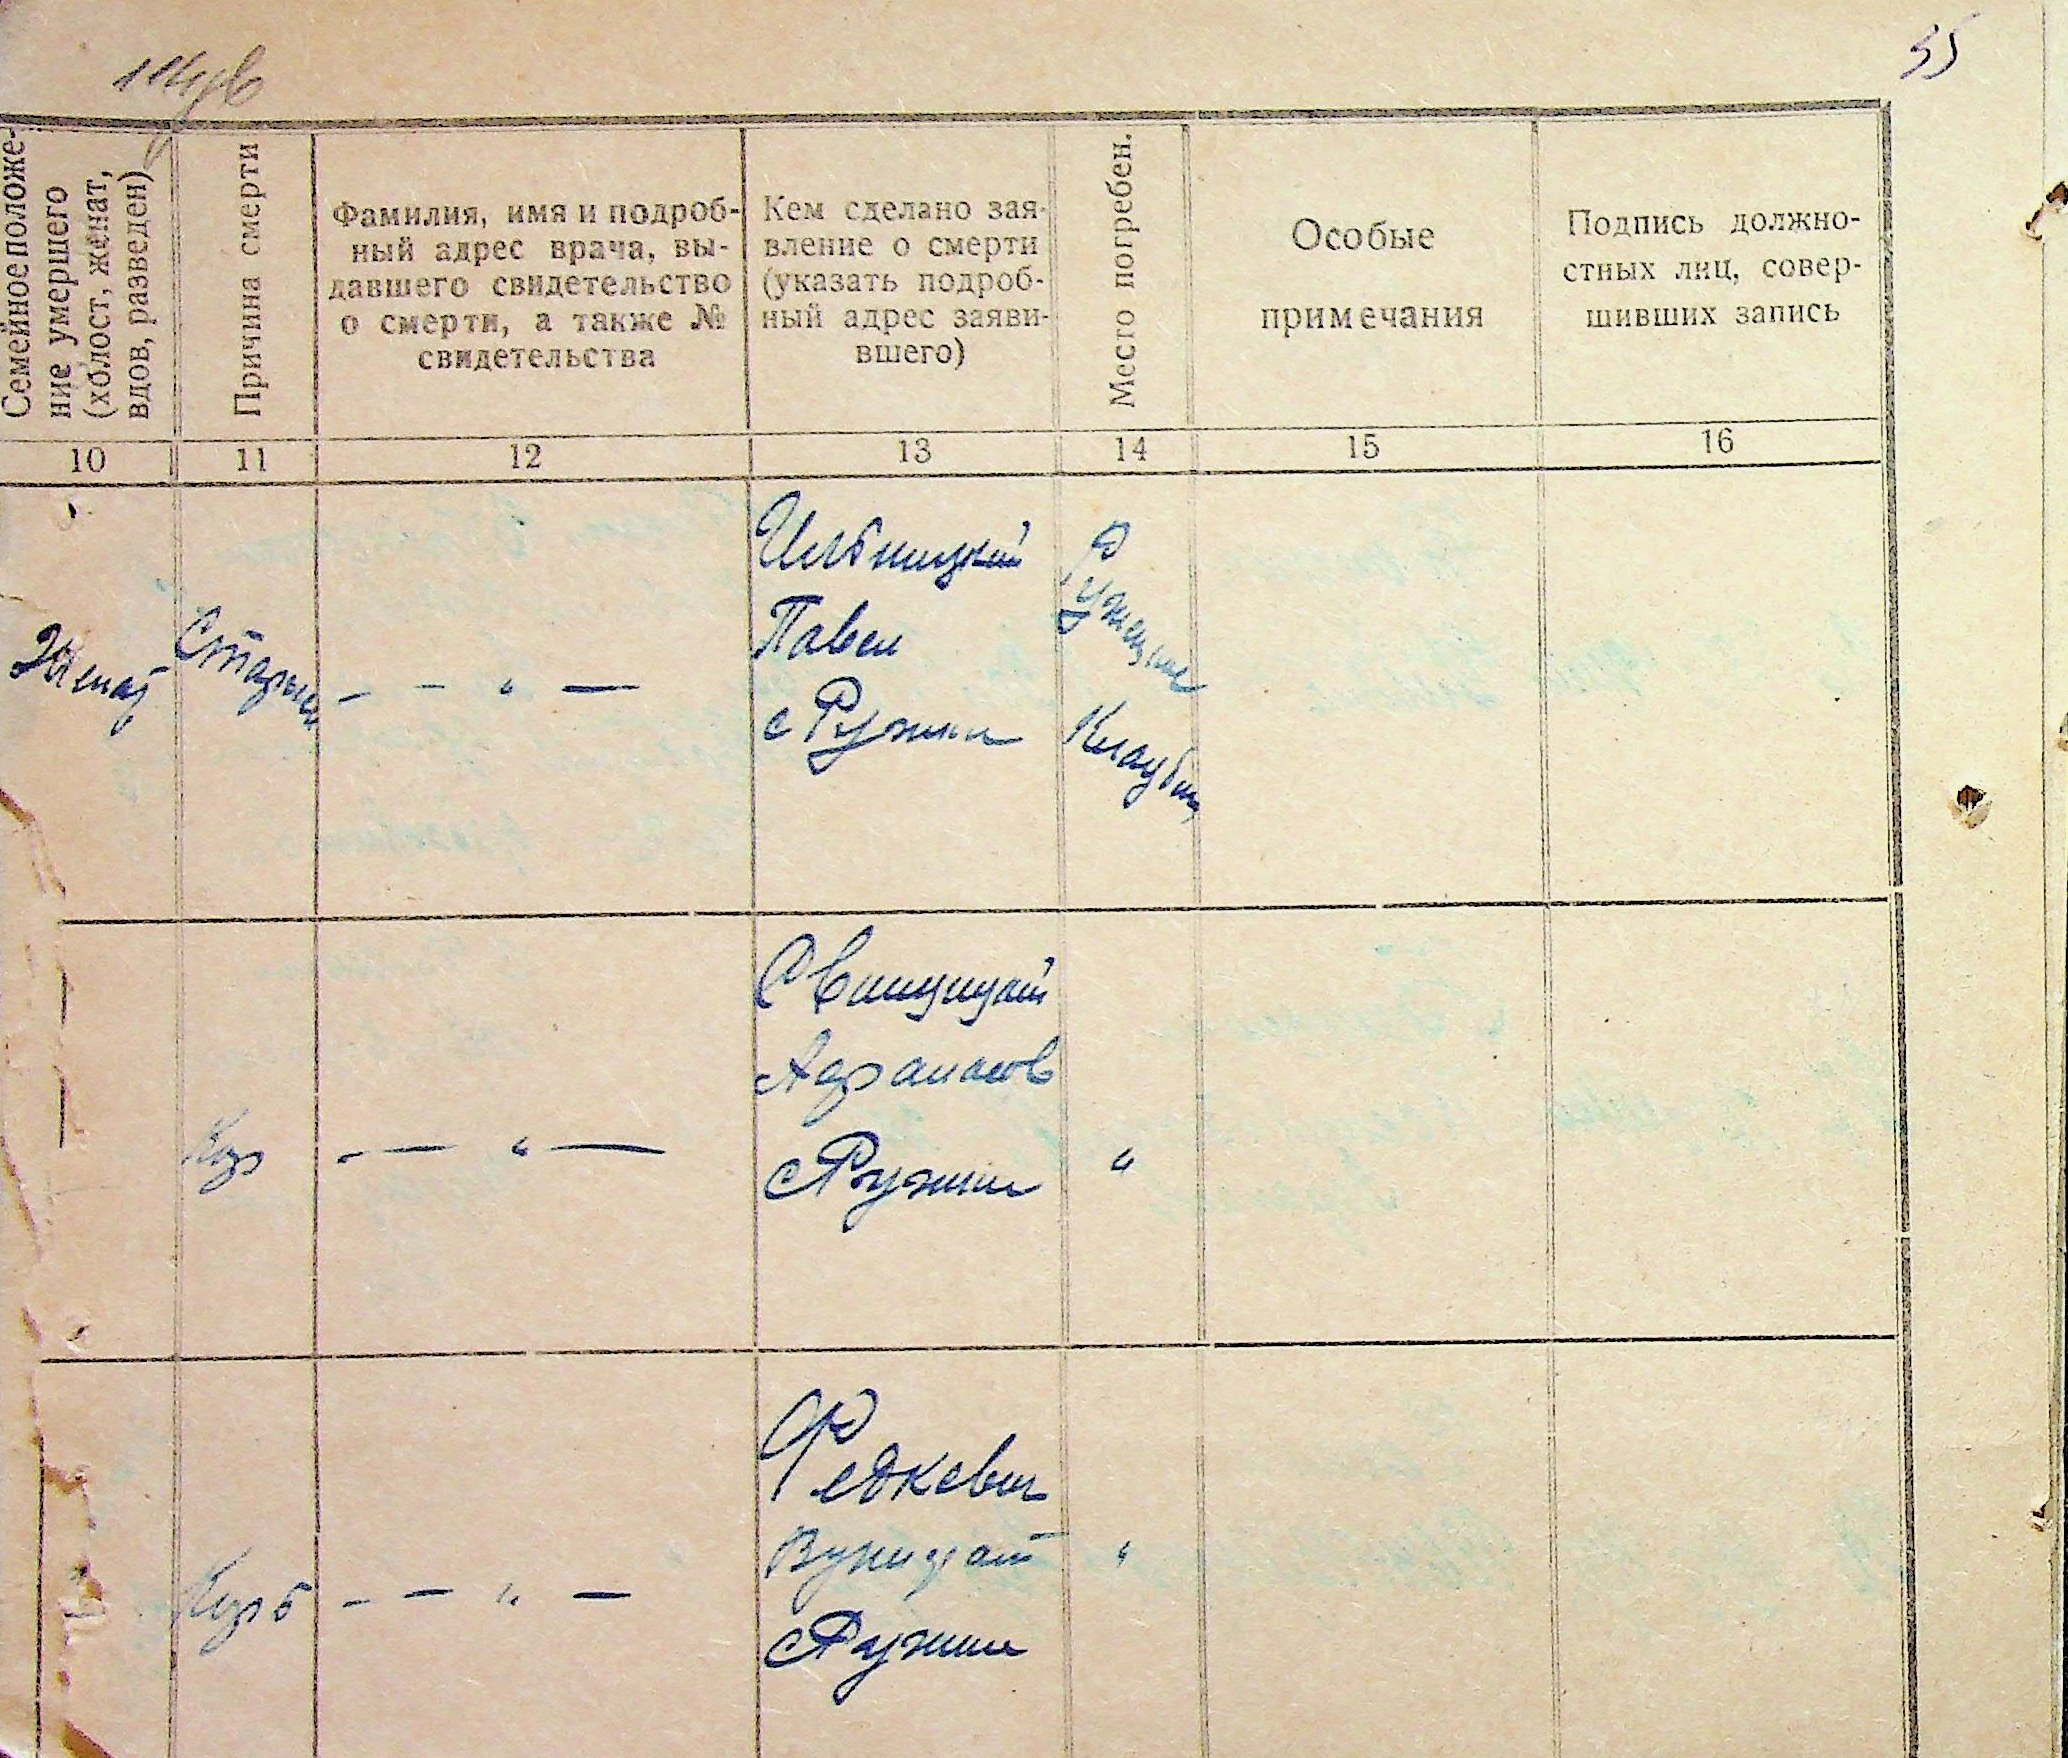 35
Семейное положе-
ние умершего
(холост, женат,
вдов, разведен)
Причина смерти
Фамилия, имя и подроб-
ный адрес врача, вы-
давшего свидетельство
о смерти, а также №
свидетельства
Кем сделано зая-
вление о смерти
(указать подроб-
ный адрес заяви-
вшего)
Место погребен.
Особые
примечания
Подпись должно-
стных лиц, совер-
шивших запись
10 11 12 13 14 15 16
Женат
— — " —
Ильницкий
Павел
с Ружин
— — " —
с Ружин
"
Корь
— — " —
Федкевич
с Ружин
"